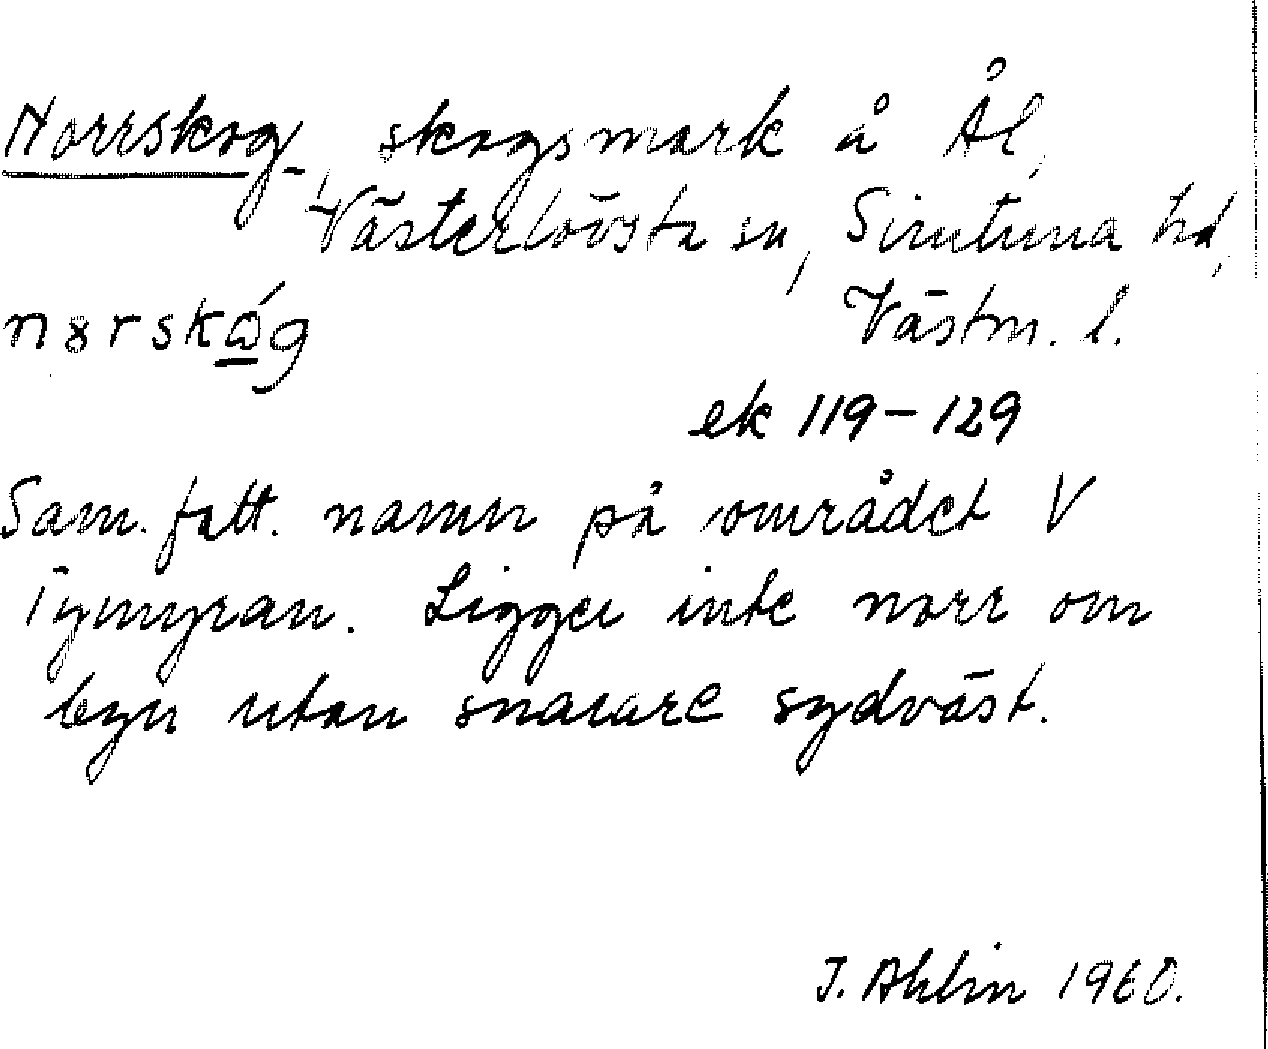 Norrskog, skogsmark å Ål,
Västerlövsta sn, Simtuna hd,
Västm. l.
norskóg
ek 119-129
Sam. fatt. namn på området V
Tymyran. Ligger inte norr om
byn utan snarare sydväst.
I. Ahlin 1960.